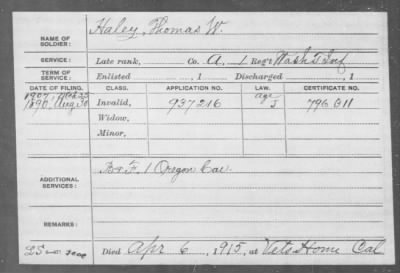 NAME OF SOLDIER: Haley, Thomas W.
SERVICE: Late rank, Co. A, 1 Reg't Wash T Inf
TERM OF SERVICE: Enlisted , 1 Discharged , 1
DATE OF FILING. CLASS. APPLICATION NO. LAW. CERTIFICATE NO.
1907, age
1890 Aug 30 Invalid, 937216 J 796811
Widow,
Minor,
ADDITIONAL SERVICES: B & F, 1 Oregon Cav.
REMARKS:
Died Apr 6, 1915, at Vets Home Cal